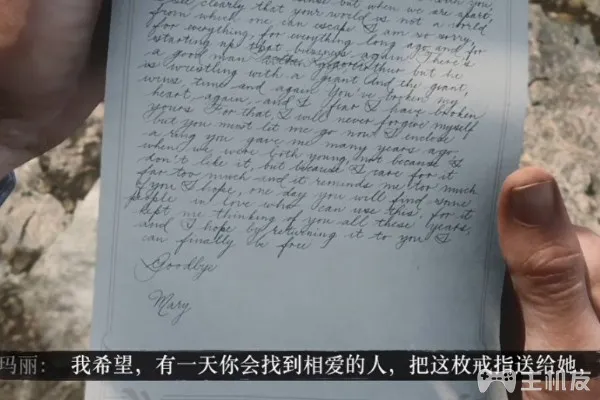 but when we are apart,
see clearly that your world is not a world
from which one can escape I am so sorry
for everything, for everything long ago and for
starting up that business again There's
a good man within Arthur but he
is wrestling with a giant And the giant,
wins time and again You've broken my
heart again, and I fear I have broken
yours For that, I will never forgive myself
but you must let me go now I enclose
a ring you gave me many years ago
when we were both young, not because I
don't like it, but because I care for it
far too much and it reminds me too much
of you I hope, one day you will find some
people in love who can use this, for it
kept me thinking of you all these years,
and I hope by returning it to you I
can finally be free
Goodbye
Mary
玛丽： 我希望，有一天你会找到相爱的人，把这枚戒指送给她，
主机友